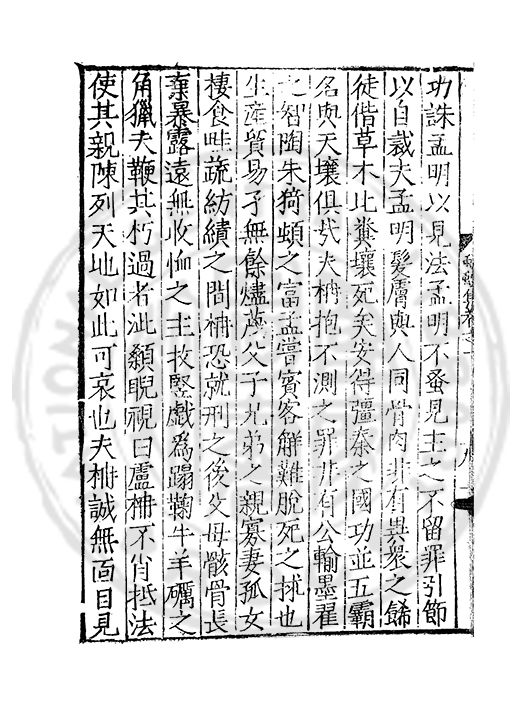 功誅孟明以見法孟明不蚤見主之不留罪引節
以自裁夫孟明髮膚與人同骨肉非有異衆之餙
徒偕草木比糞壤死矣安得彊秦之國功並五霸
名與天壤俱哉夫柟抱不測之罪非有公輸墨翟
之智陶朱猗頓之富孟嘗賓客解難脫死之捄也
生産貿易孑無餘燼蔑父子兄弟之親寡妻孤女
棲食畦蔬紡績之間柟恐就刑之後父母骸骨長
棄暴露遠無收恤之主牧豎戲為蹋鞠牛羊礪之
角獵夫鞭其朽過者泚顙睨視曰盧柟不肖抵法
使其親陳列天地如此可哀也夫柟誠無面目見